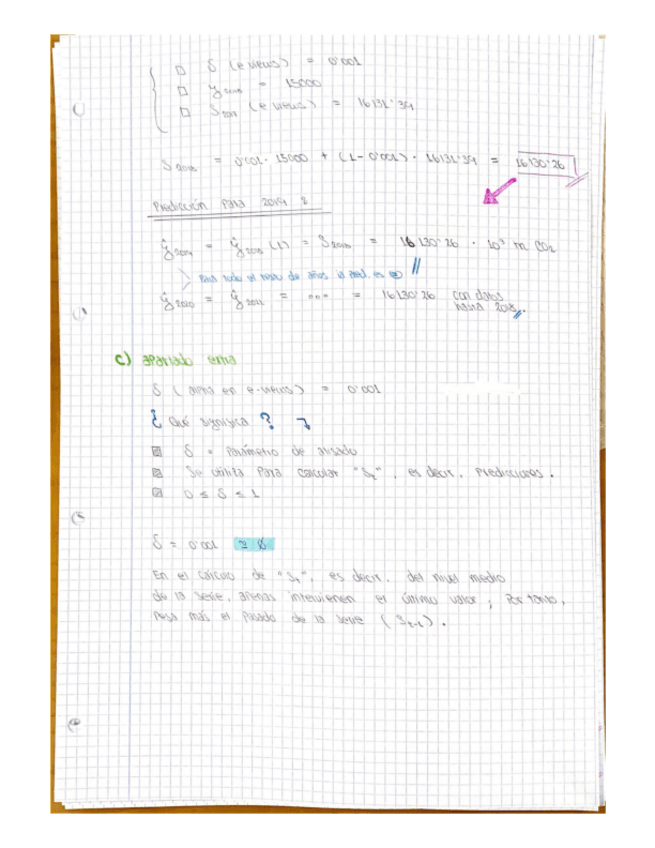 □ δ (e views) = 0'001
□ y2018 = 15000
□ S2017 (e views) = 16131'39
S2018 = 0'001 · 15000 + (1-0'001) · 16131'39 = 16130'26
Predicción para 2019 :
ŷ2019 = ŷ2018 (1) = S2018 = 16130'26 · 10³ m CO₂
Para todo el resto de años la pred. es
ŷ2020 = ŷ2021 = ... = 16130'26 con datos
hasta 2018.
c) apartado extra
δ (alpha en e-views) = 0'001
¿ Qué significa ?
δ = Parámetro de alisado
Se utiliza para calcular "St", es decir, predicciones.
0 ≤ δ ≤ 1
δ = 0'001 ≃ 0
En el cálculo de "St", es decir, del nivel medio
de la serie, apenas intervienen el último valor ; Por tanto,
pesa más el pasado de la serie (St-1).